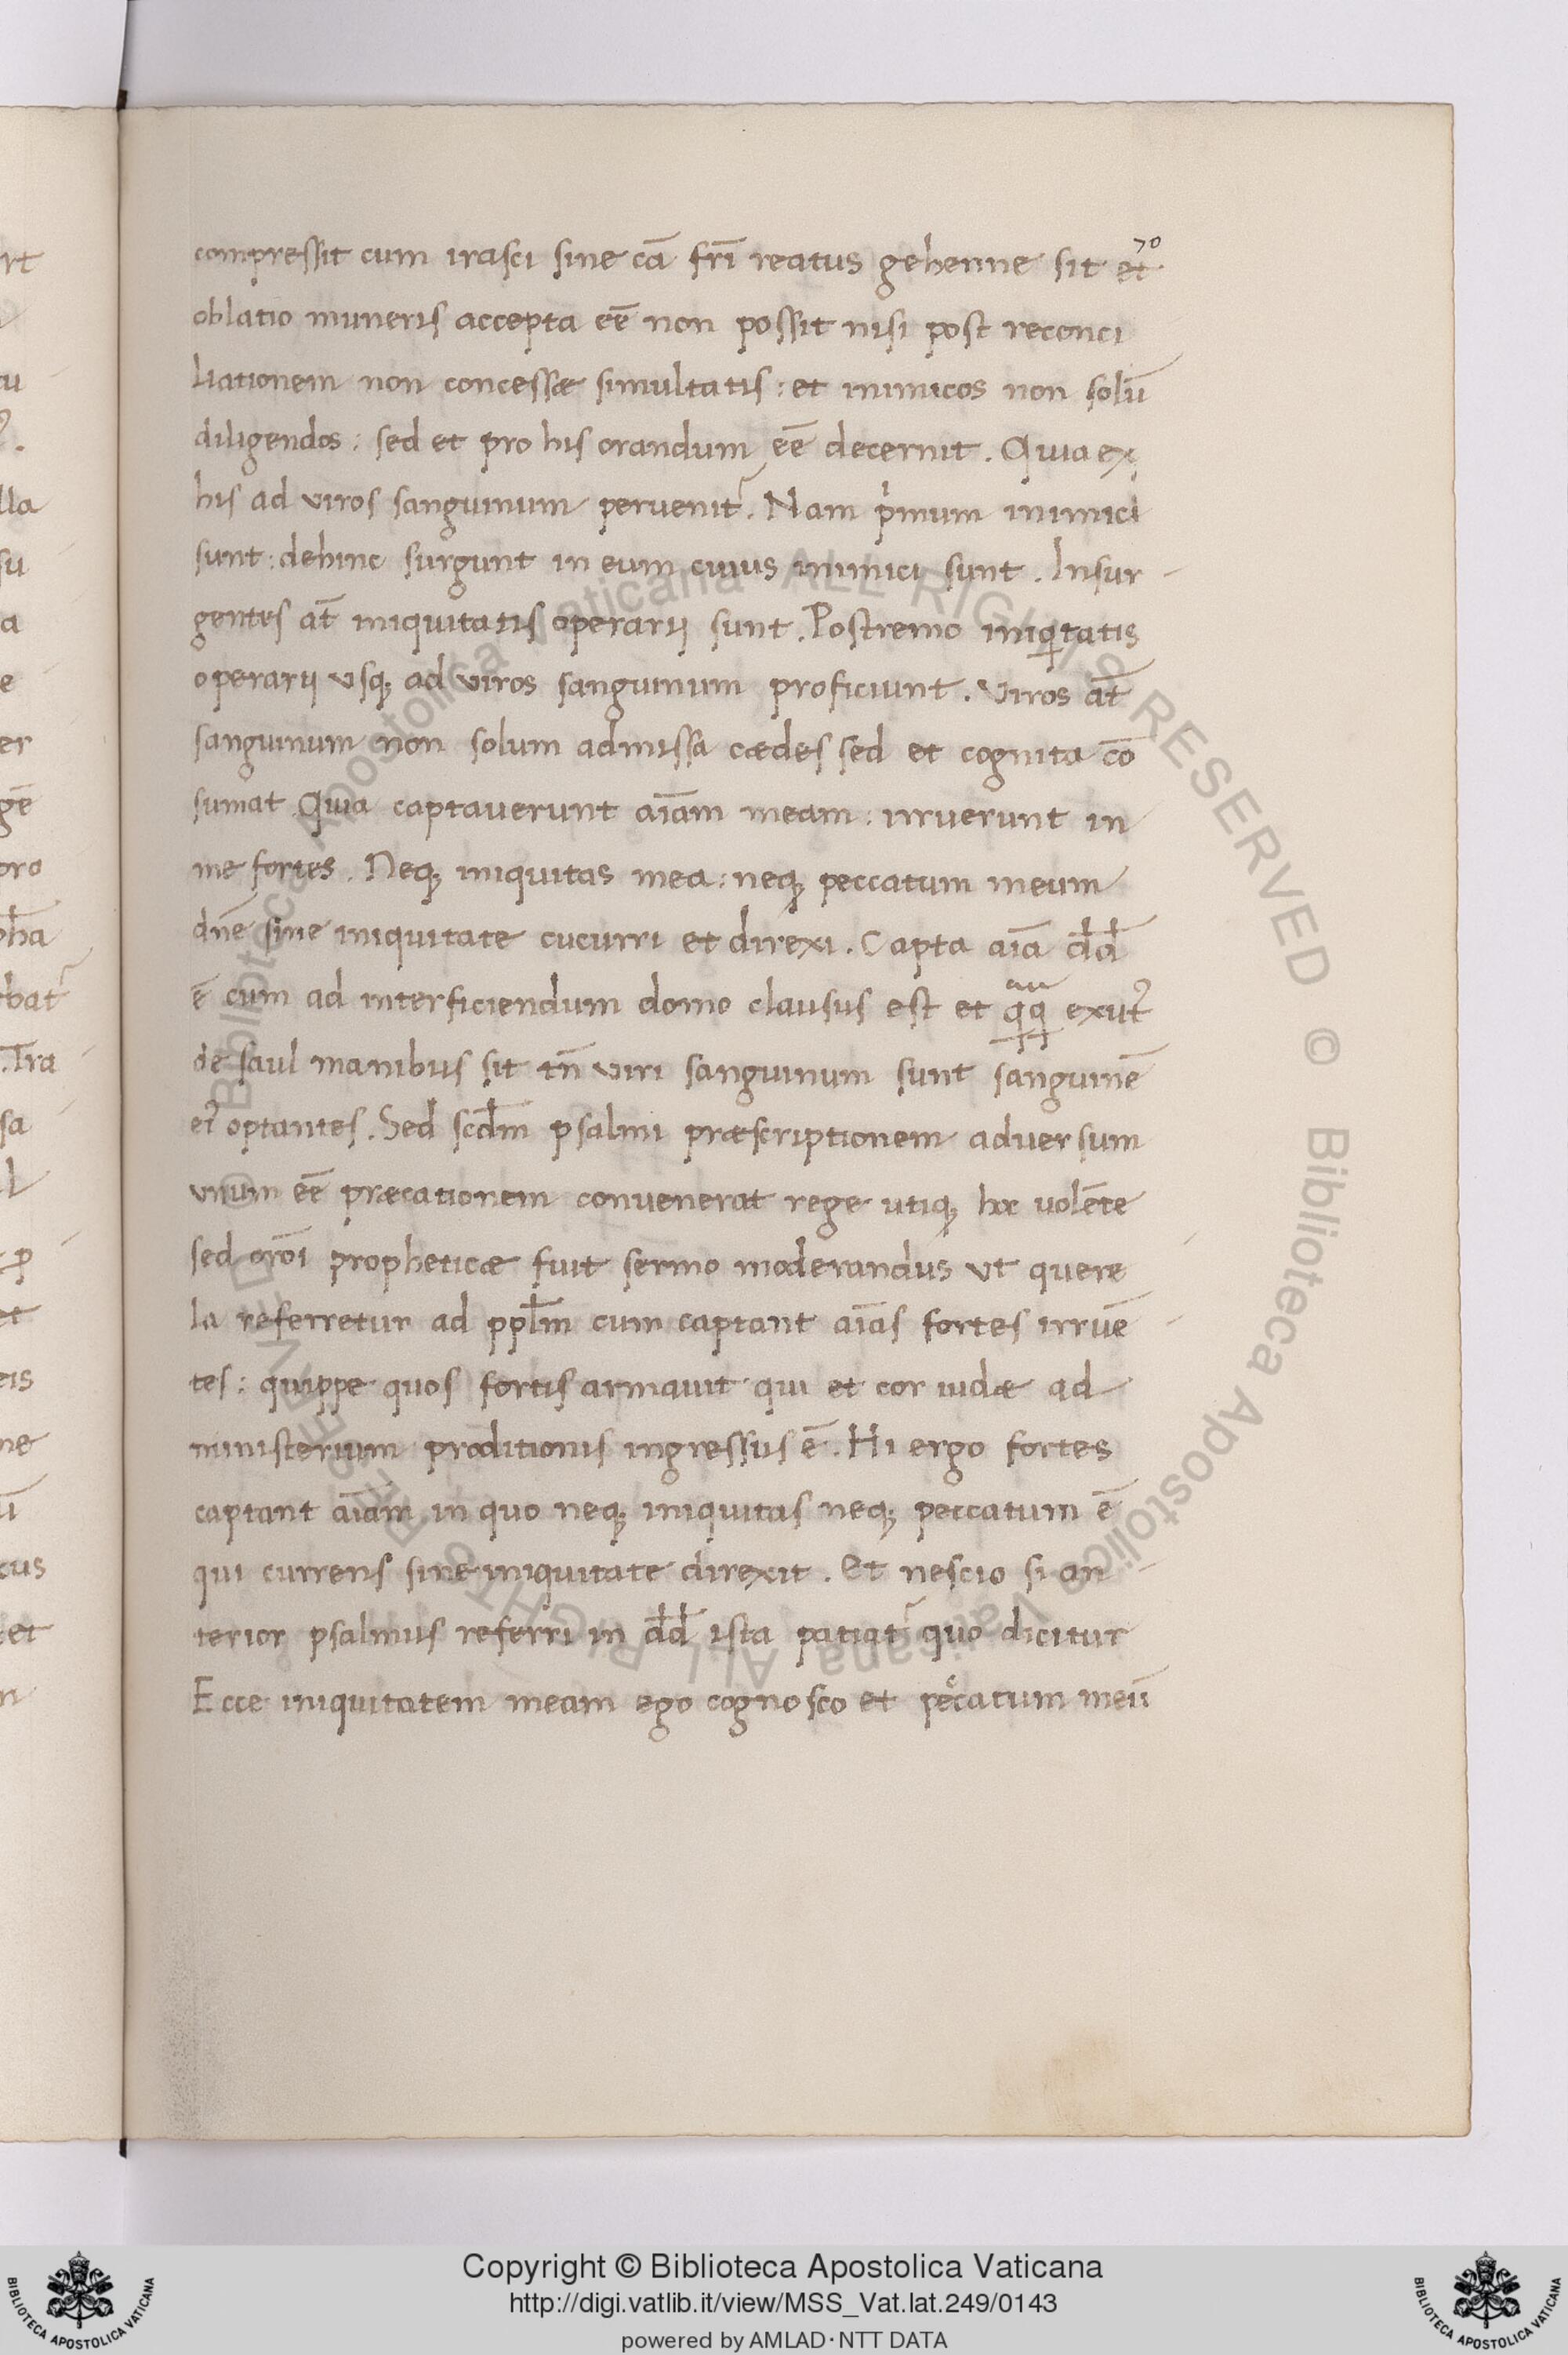 70
compressit cum irasci sine cā frī reatus gehenne sit et
oblatio muneris accepta eē non possit nisi post reconci
liationem non concessæ simultatis: et inimicos non solū
diligendos: sed et pro his orandum eē decernit. Quia ex
his ad viros sanguinum peruenit᷑. Nam pͥmum inimici
sunt: dehinc surgunt in eum cuius inimici sunt. Insur
gentes āt iniquitatis operarij sunt. Postremo iniqͥtatis
operarij vsqꝫ ad viros sanguinum proficiunt. Viros āt
sanguinum non solum admissa cædes sed et cognita cō
sumat. Quia captauerunt aīam meam: irruerunt in
me fortes. Neqꝫ iniquitas mea: neqꝫ peccatum meum
dnē sine iniquitate cucurri et direxi. Capta aīa dd̄
ē cum ad interficiendum domo clausus est et qq exut᷑
de saul manibus sit tn̄ viri sanguinum sunt sanguinē
ei᷑ optantes. Sed scdm̄ psalmi præscriptionem aduersum
vnum eē præcationem conuenerat rege utiqꝫ hoc volēte
sed oroī propheticæ fuit sermo moderandus vt quere
la referretur ad pplm̄ cum captant aīas fortes irruē
tes: quippe quos fortis armauit qui et cor iudæ ad
ministerium proditionis ingressus ē. Hi ergo fortes
captant aīam in quo neqꝫ iniquitas neqꝫ peccatum ē
qui currens sine iniquitate direxit. Et nescio si an
terior psalmus referri in dd̄ ista patiat᷑ quo dicitur
Ecce iniquitatem meam ego cognosco et pecͨatum meū
Copyright © Biblioteca Apostolica Vaticana
http://digi.vatlib.it/view/MSS_Vat.lat.249/0143
powered by AMLAD·NTT DATA
BIBLIOTECA APOSTOLICA VATICANA
BIBLIOTECA APOSTOLICA VATICANA